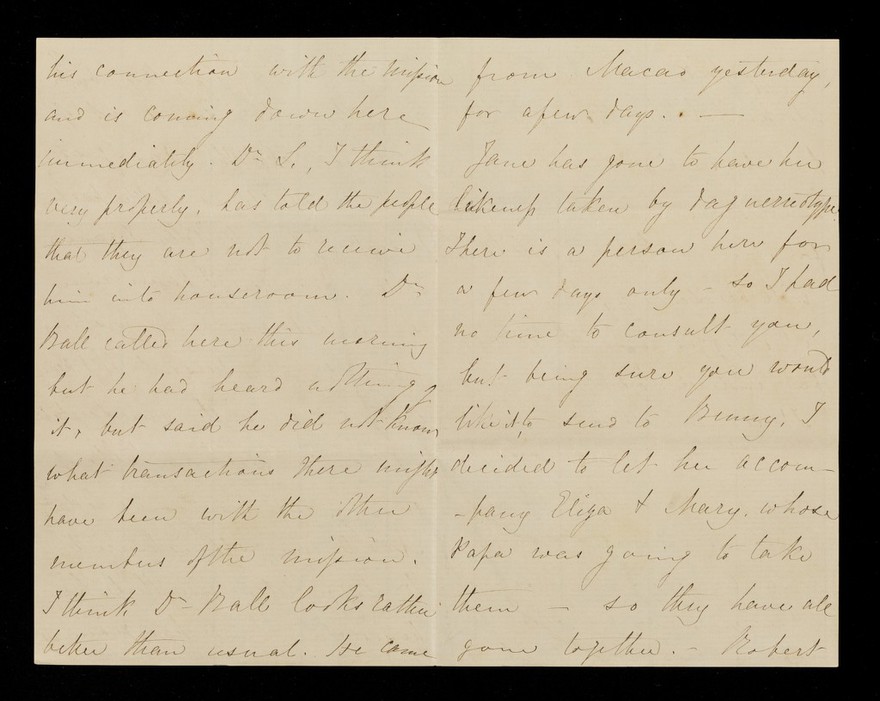 his connection with the Mission
and is coming down here
immediately. Dr S., I think
very properly, has told the people
that they are not to receive
him into houseroom. Dr
Ball called here this morning
but he had heard nothing of
it, but said he did not know
what transactions there might
have been with the other
members of the mission.
I think Dr Ball looks rather
better than usual. He came
from Macao yesterday,
for a few days. . —
Jane has gone to have her
likeness taken by daguerreotype.
There is a person here for
a few days only – so I had
no time to consult you,
but being sure you would
like it to send to Benny, I
decided to let her accom–
–pany Eliza & Mary, whose
Papa was going to take
them — so they have all
gone together. – Robert